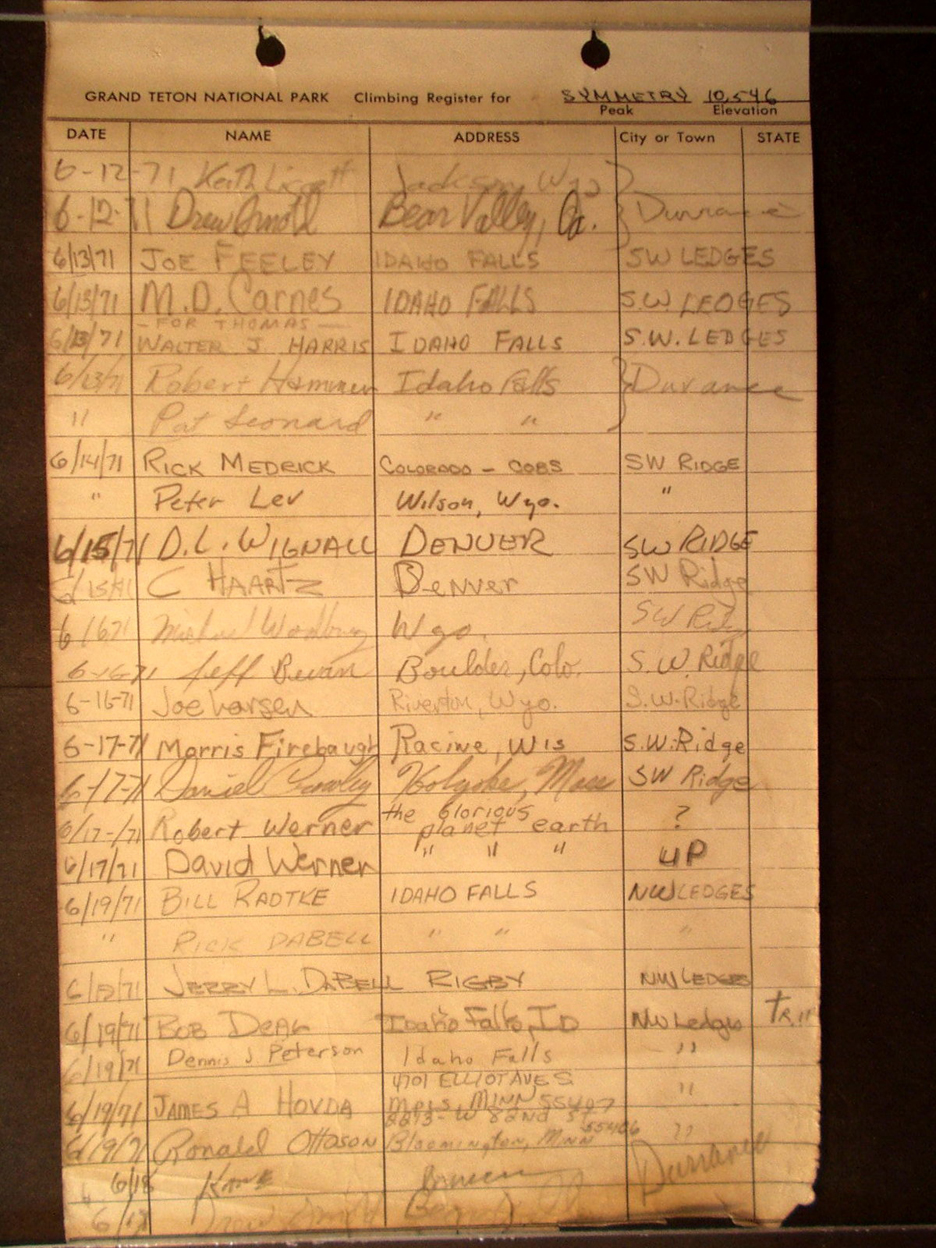 GRAND TETON NATIONAL PARK Climbing Register for SYMMETRY 10,546
Peak Elevation
DATE NAME ADDRESS City or Town STATE
6-12-71 Keith Jackson, Wyo
6-12-71 Drew Arnold Bear Valley, Ca. Durrance
6/13/71 JOE FEELEY IDAHO FALLS SW LEDGES
6/13/71 M.D. Carnes IDAHO FALLS S.W LEDGES
- FOR THOMAS -
6/13/71 WALTER J. HARRIS IDAHO FALLS S.W. LEDGES
6/13/71 Robert Idaho Falls Durance
" Pat Leonard " "
6/14/71 RICK MEDRICK COLORADO - COBS SW RIDGE
" Peter Lev Wilson, Wyo. "
6/15/71 D.L. WIGNALL DENVER SW RIDGE
6/15/71 C HAARTZ Denver SW Ridge
6/16/71 Michael Wyo. SW
6-16-71 Jeff Boulder, Colo. S.W. Ridge
6-16-71 Joe Larsen Riverton, Wyo. S.W. Ridge
6-17-71 Morris Firebaugh Racine, Wis S.W. Ridge
6-17-71 Daniel Holyoke, Mass SW Ridge
the Glorious
6/17-/71 Robert Werner planet earth ?
6/17/71 David Werner " " " UP
6/19/71 BILL RADTKE IDAHO FALLS NW LEDGES
" RICK DABELL " " "
6/19/71 JERRY L. DABELL RIGBY NW LEDGES
6/19/71 BOB DEAL Idaho Falls, ID NW Ledges
6/19/71 Dennis J Peterson Idaho Falls "
4701 ELLIOT AVE S.
6/19/71 JAMES A HOVDA Mpls, MINN 55407 "
W 82nd St
6/19/71 Ronald Ottoson Bloomington, Minn "
6/18 Durrance
6/18 Drew Arnold